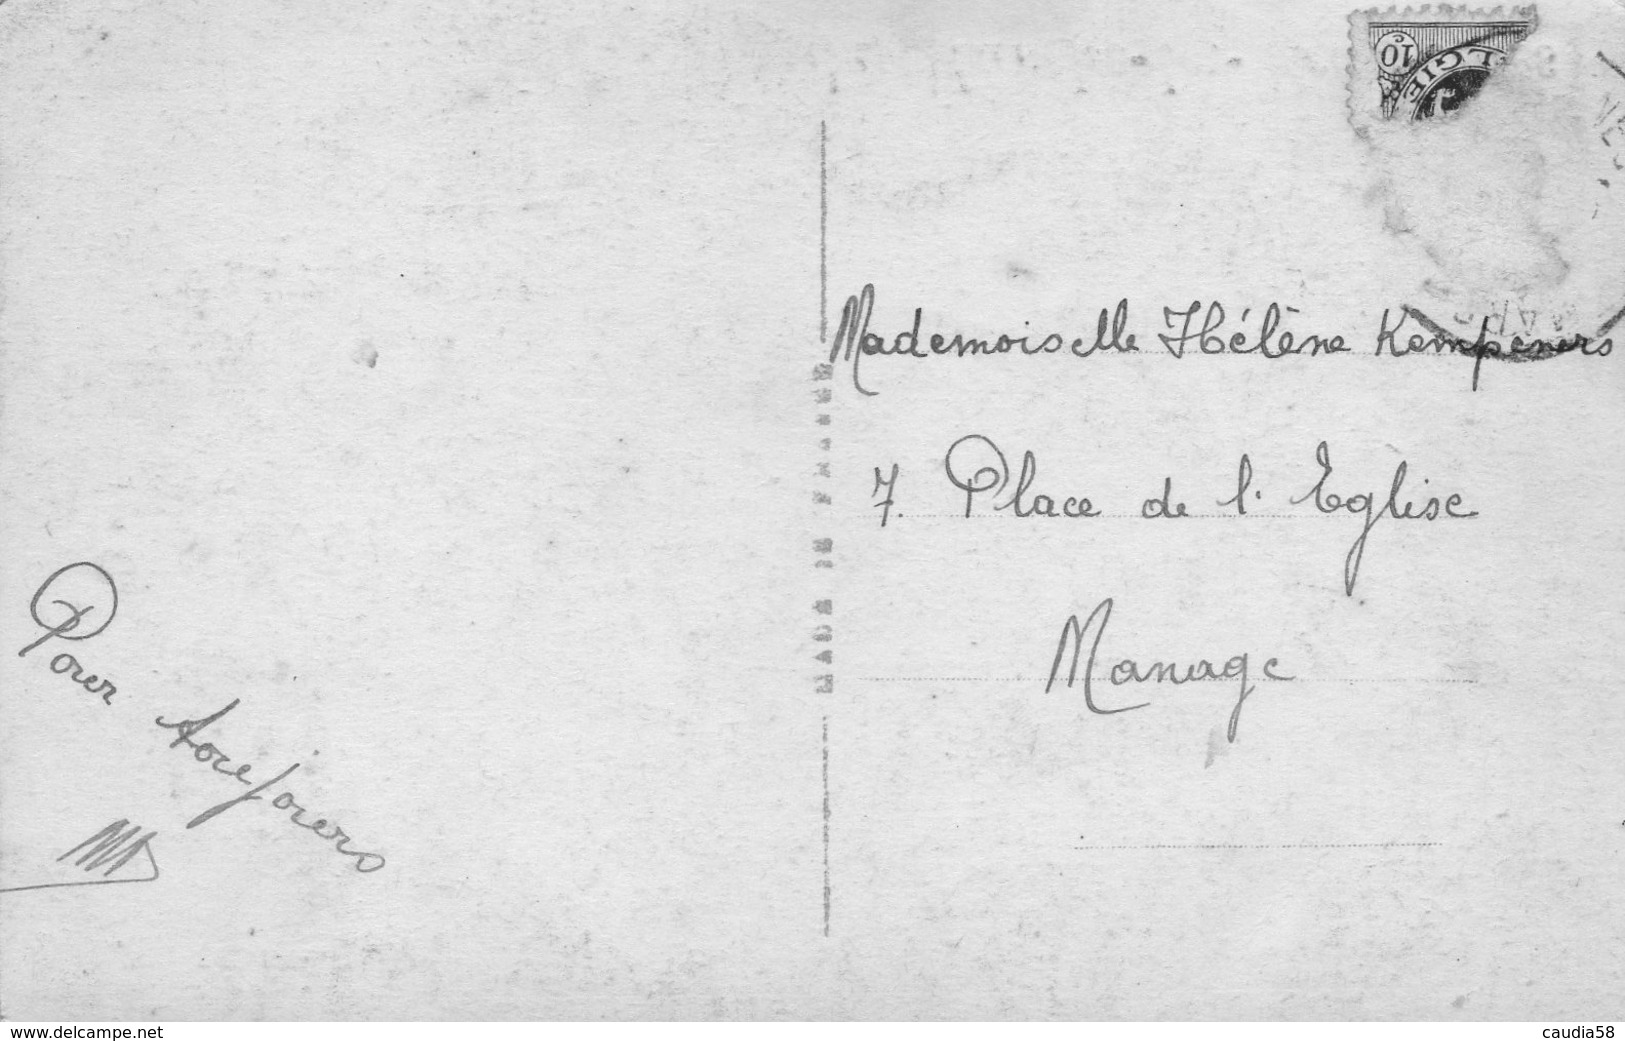 10
c
LGIE
Mademoiselle Hélène Kempeners
7. Place de l'Eglise
Manage
MADE IN FRANCE
Pour toujours
www.delcampe.net
caudia58